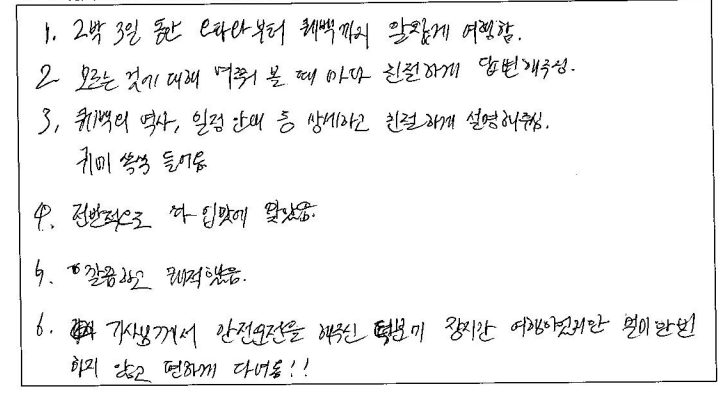 1. 2박 3일 동안 오타와부터 퀘백까지 알차게 여행함.
2 모르는 것에 대해 여쭤 볼 때 마다 친절하게 답변해주심.
3, 퀘백의 역사, 일정 안내 등 상세하고 친절하게 설명해주심.
귀에 쏙쏙 들어옴
4. 전반적으로 다 입맛에 맞았음.
5. 깔끔하고 쾌적했음.
6. 기사님께서 안전운전을 해주신 덕분에 장시간 여행이었지만
하지 않고 편하게 다녀옴!!